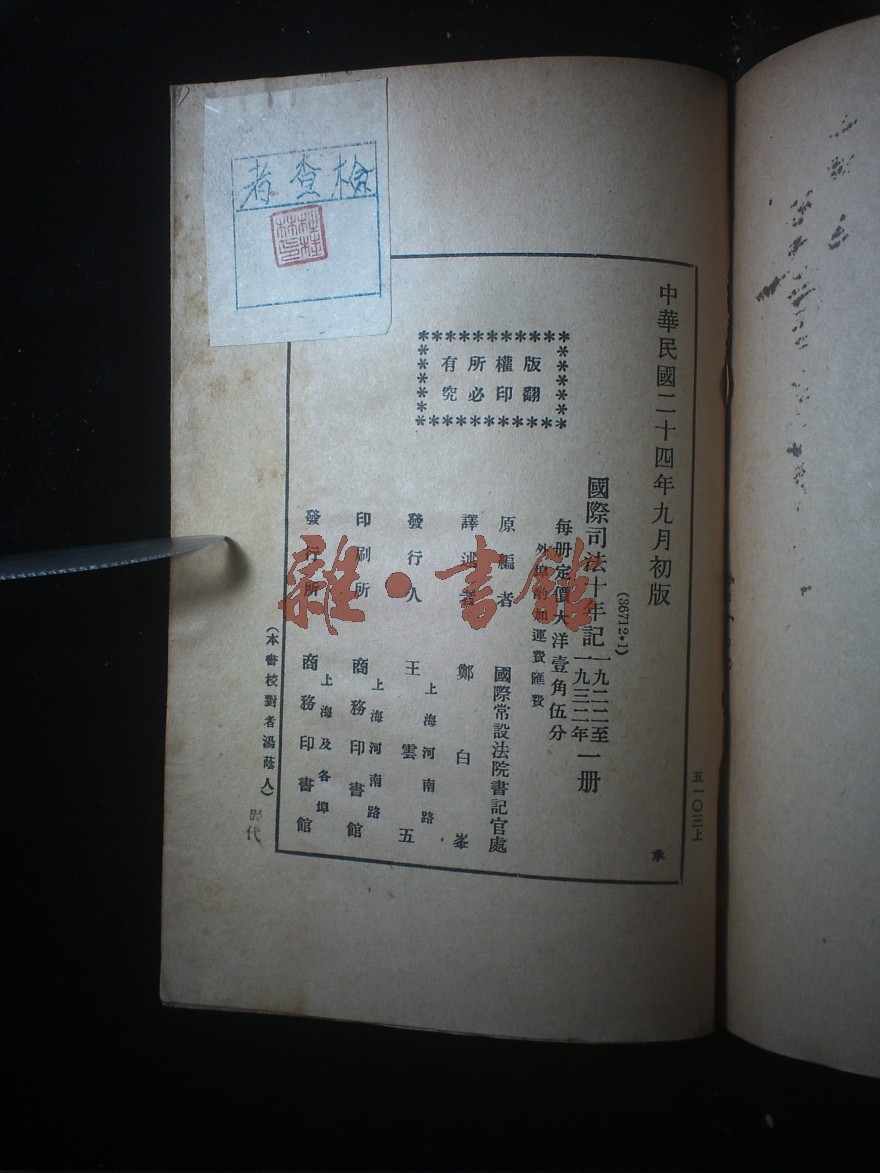 檢查者
中華民國二十四年九月初版
(36712·1)
國際司法十年記 一九二二至一九三二年 一册
每册定價大洋壹角伍分
外埠酌加運費匯費
原編者 國際常設法院書記官處
譯述者 鄭白峯
發行人 王雲五
上海河南路
印刷所 商務印書館
上海河南路
發行所 商務印書館
上海及各埠
版權所有
翻印必究
(本書校對者湯蔭人)
五一〇三上
承
雜·書館